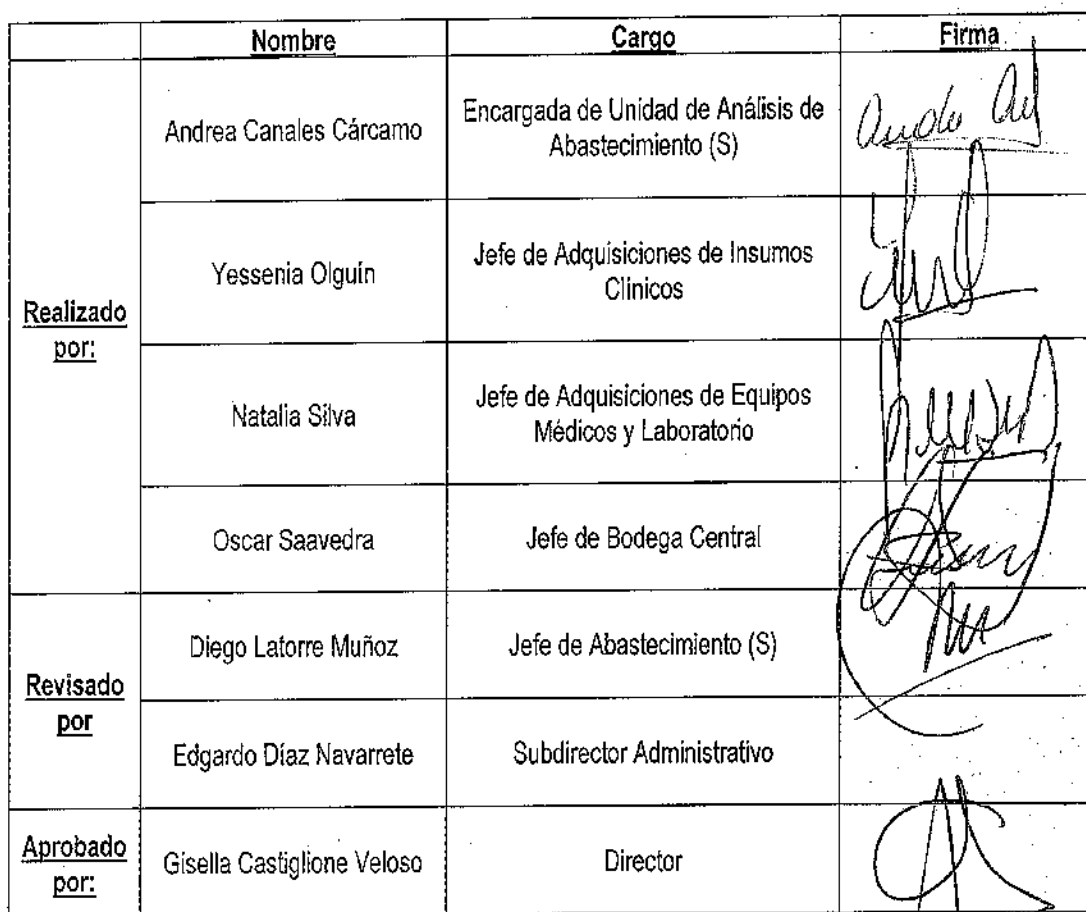 Nombre Cargo Firma
Andrea Canales Cárcamo
Encargada de Unidad de Análisis de
Abastecimiento (S)
Yessenia Olguín
Jefe de Adquisiciones de Insumos
Clínicos
Realizado
por:
Natalia Silva
Jefe de Adquisiciones de Equipos
Médicos y Laboratorio
Oscar Saavedra
Jefe de Bodega Central
Revisado
por
Diego Latorre Muñoz
Jefe de Abastecimiento (S)
Edgardo Díaz Navarrete
Subdirector Administrativo
Aprobado
por:
Gisella Castiglione Veloso
Director